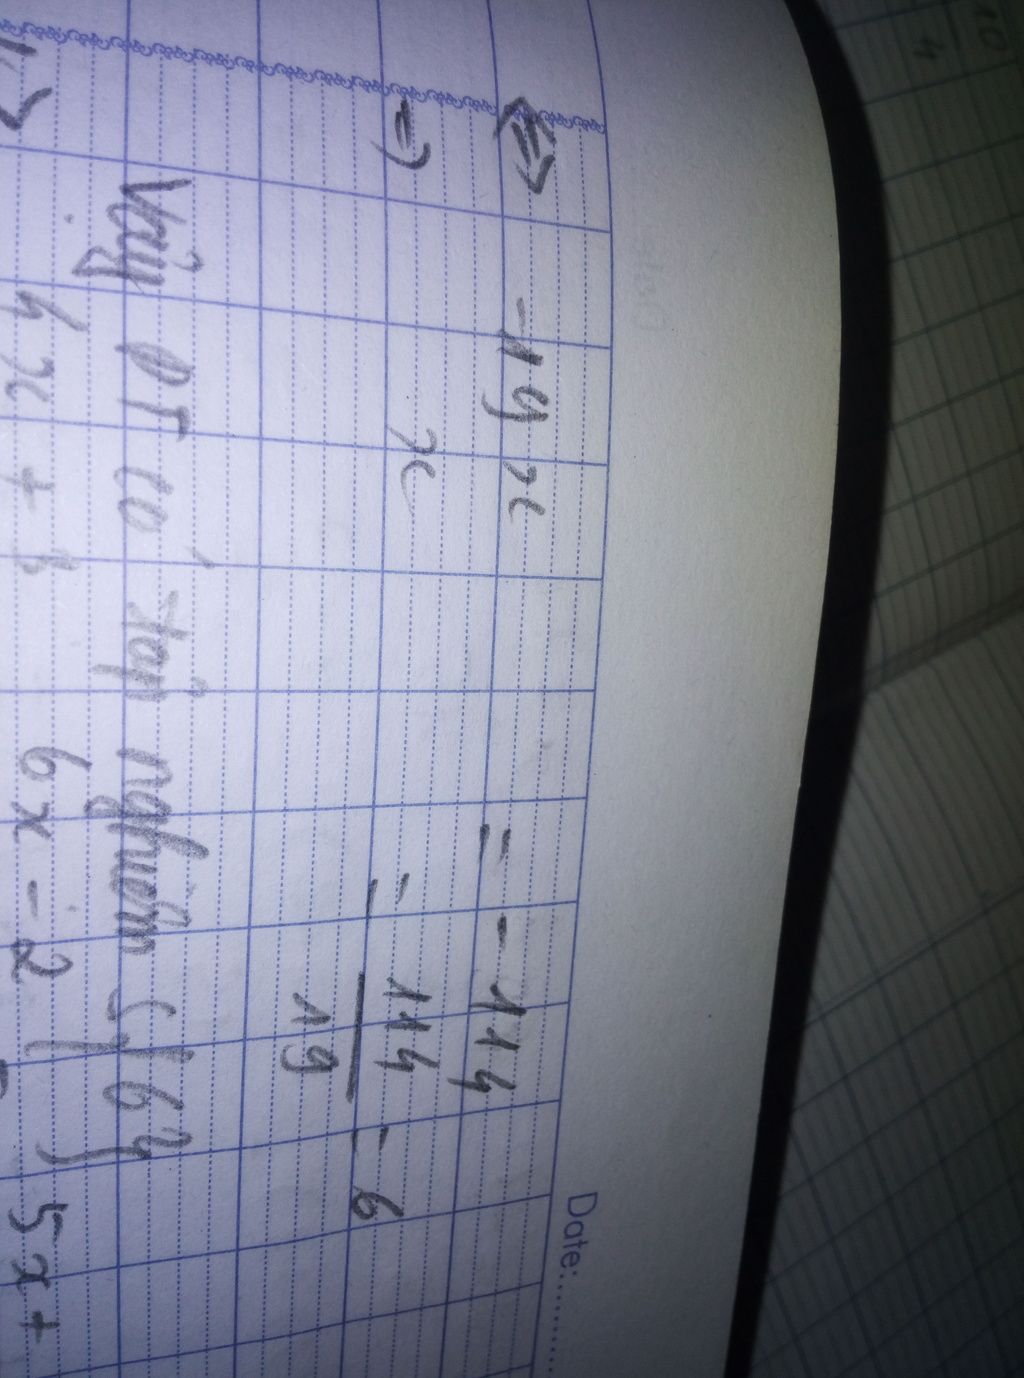 Date:..........
<=> -19x = -114
=> x = 114/19 = 6
Vậy PT có tập nghiệm S={6}
4x + 3 6x - 2 5x +
10
4